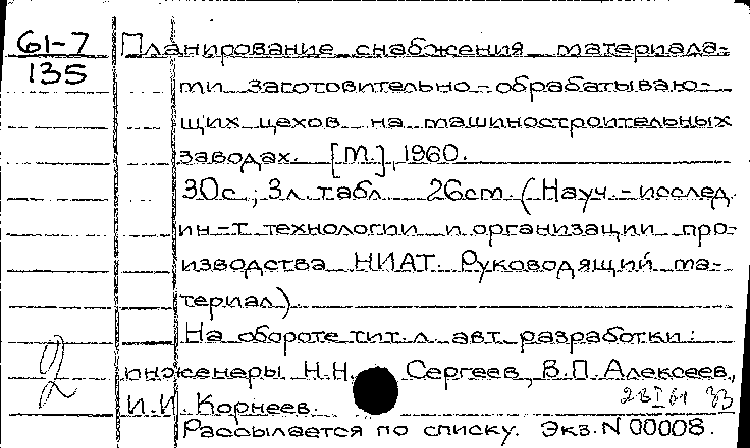 61-7
135
Планирование снабжения материала-
ми заготовительно-обрабатываю-
щих цехов на машиностроительных
заводах. [М.], 1960.
30с.; 3л. табл. 26см. (Науч.-исслед.
ин-т технологии и организации про-
изводства НИАТ. Руководящий ма-
териал).
На обороте тит. л. авт. разработки:
инженеры Н.Н. Сергеев, В.П. Алексеев,
И.И. Корнеев.
Рассылается по списку. Экз. N 00008.
2